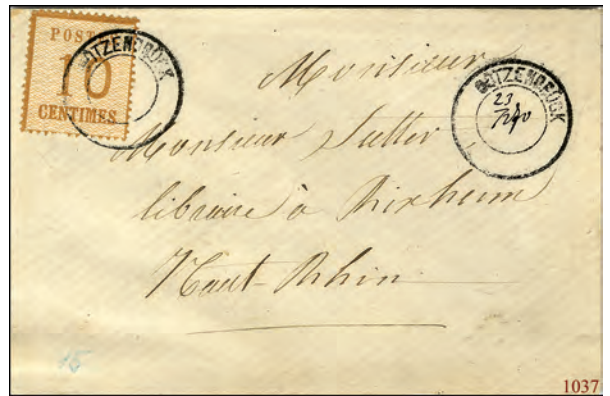 POSTES
10
CENTIMES
GÖTZENBRÜCK
GÖTZENBRÜCK
23
Monsieur
Monsieur Sutter
libraire à Rixheim
Haut-Rhin
15
1037